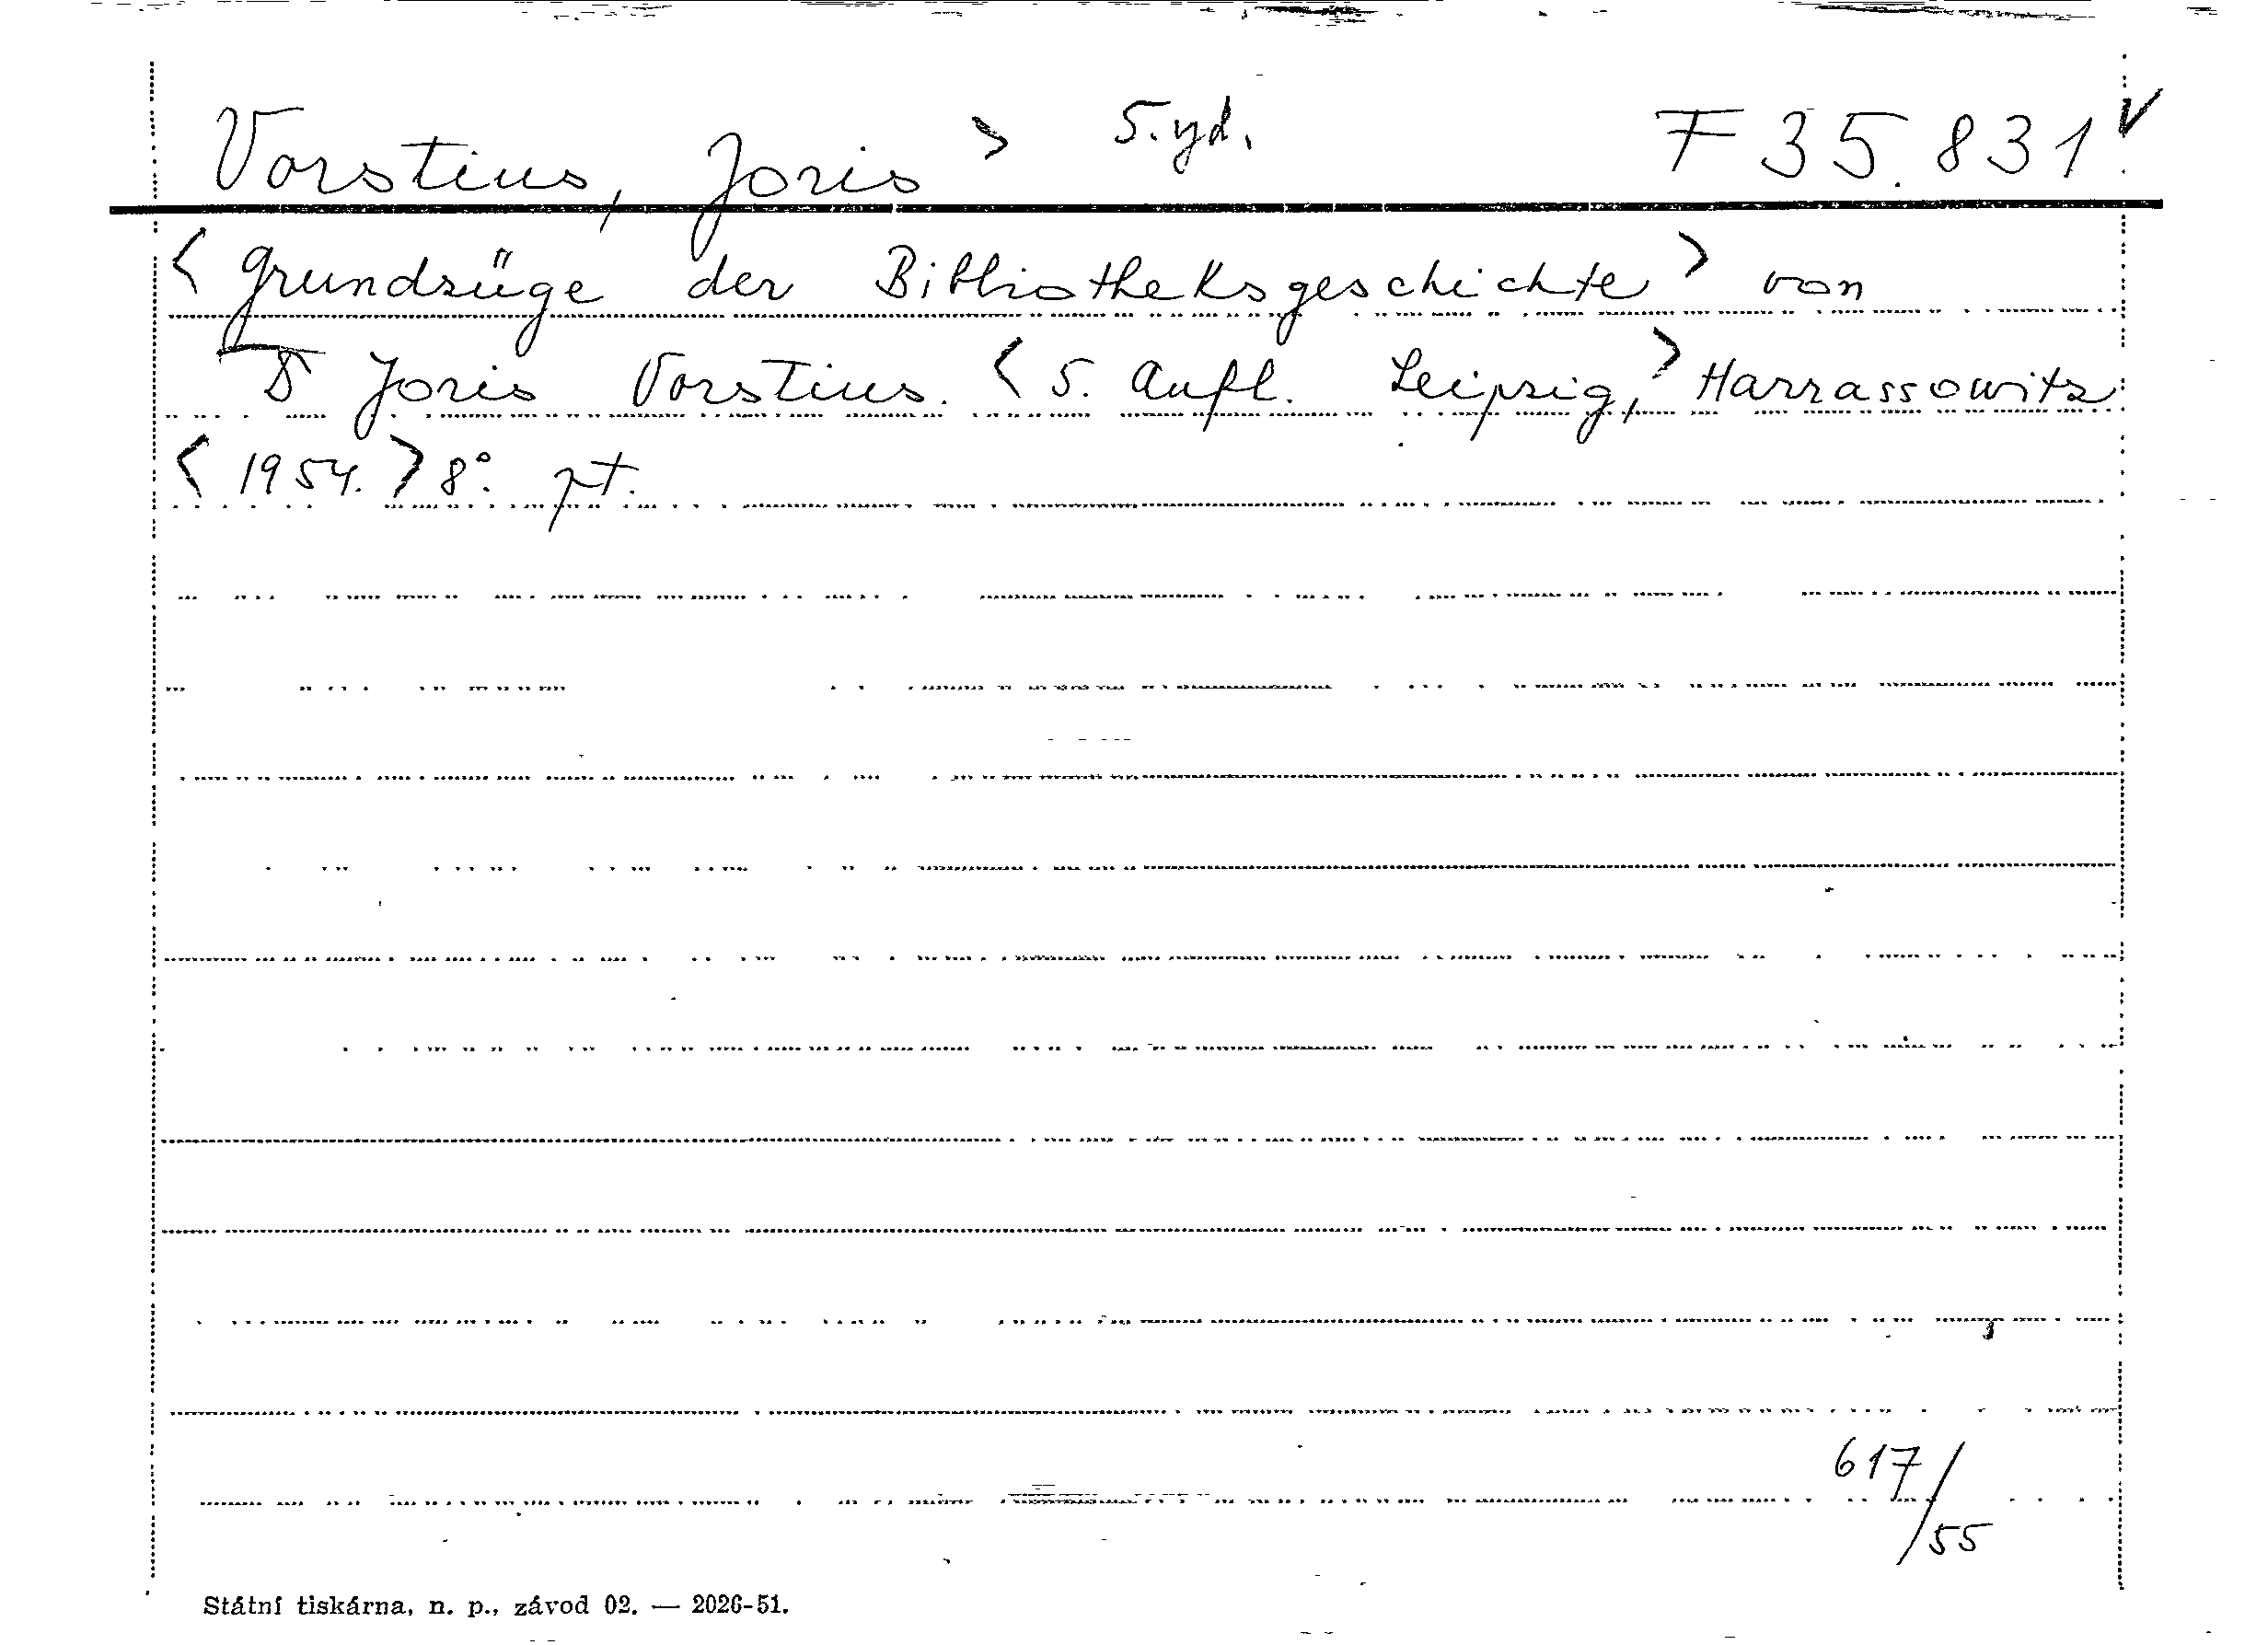 Vorstius, Joris > 5. yd. F 35.831 V
< Grundzüge der Bibliotheksgeschichte > von
Joris Vorstius. < 5. Aufl. Leipzig, > Harrassowitz
< 1954. > 8°. pt.
617/55
Státní tiskárna, n. p., závod 02. — 2026-51.